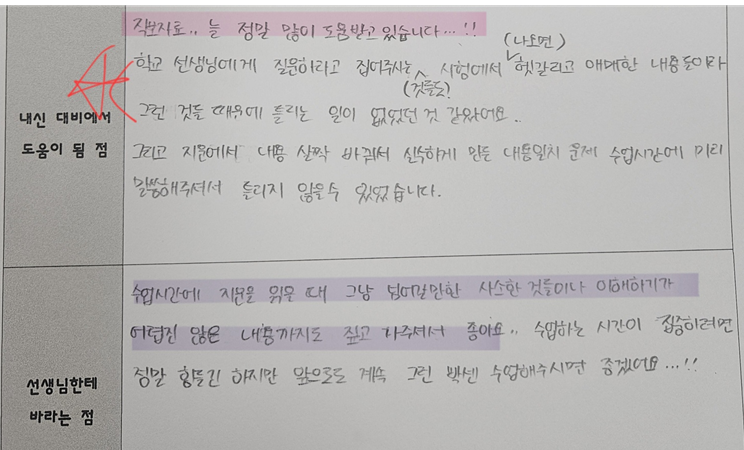 직보자료.. 늘 정말 많이 도움받고 있습니다...!!
(나오면)
학교 선생님에게 질문하라고 집어주시는 시험에서 헷갈리고 애매한 내용들이라
(것들도)
내신 대비에서
도움이 됨 점
그런 것들 때문에 틀리는 일이 없었던 것 같아요..
그리고 지문에서 내용 살짝 바꿔서 실수하게 만든 내용일치 문제 수업시간에 미리
말씀해주셔서 틀리지 않을 수 있었습니다.
수업시간에 지문을 읽을 때 그냥 넘어갈만한 사소한 것들이나 이해하기가
어렵진 않은 내용까지도 짚고 가주셔서 좋아요.. 수업하는 시간이 집중하려면
선생님한테
바라는 점
정말 힘들긴 하지만 앞으로도 계속 그런 빡센 수업해주시면 좋겠어요...!!